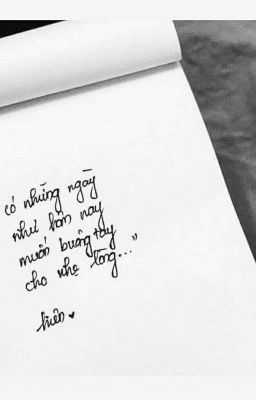 có những ngày
như hôm nay
muốn buông tay
cho nhẹ lòng..."
hiên ♥